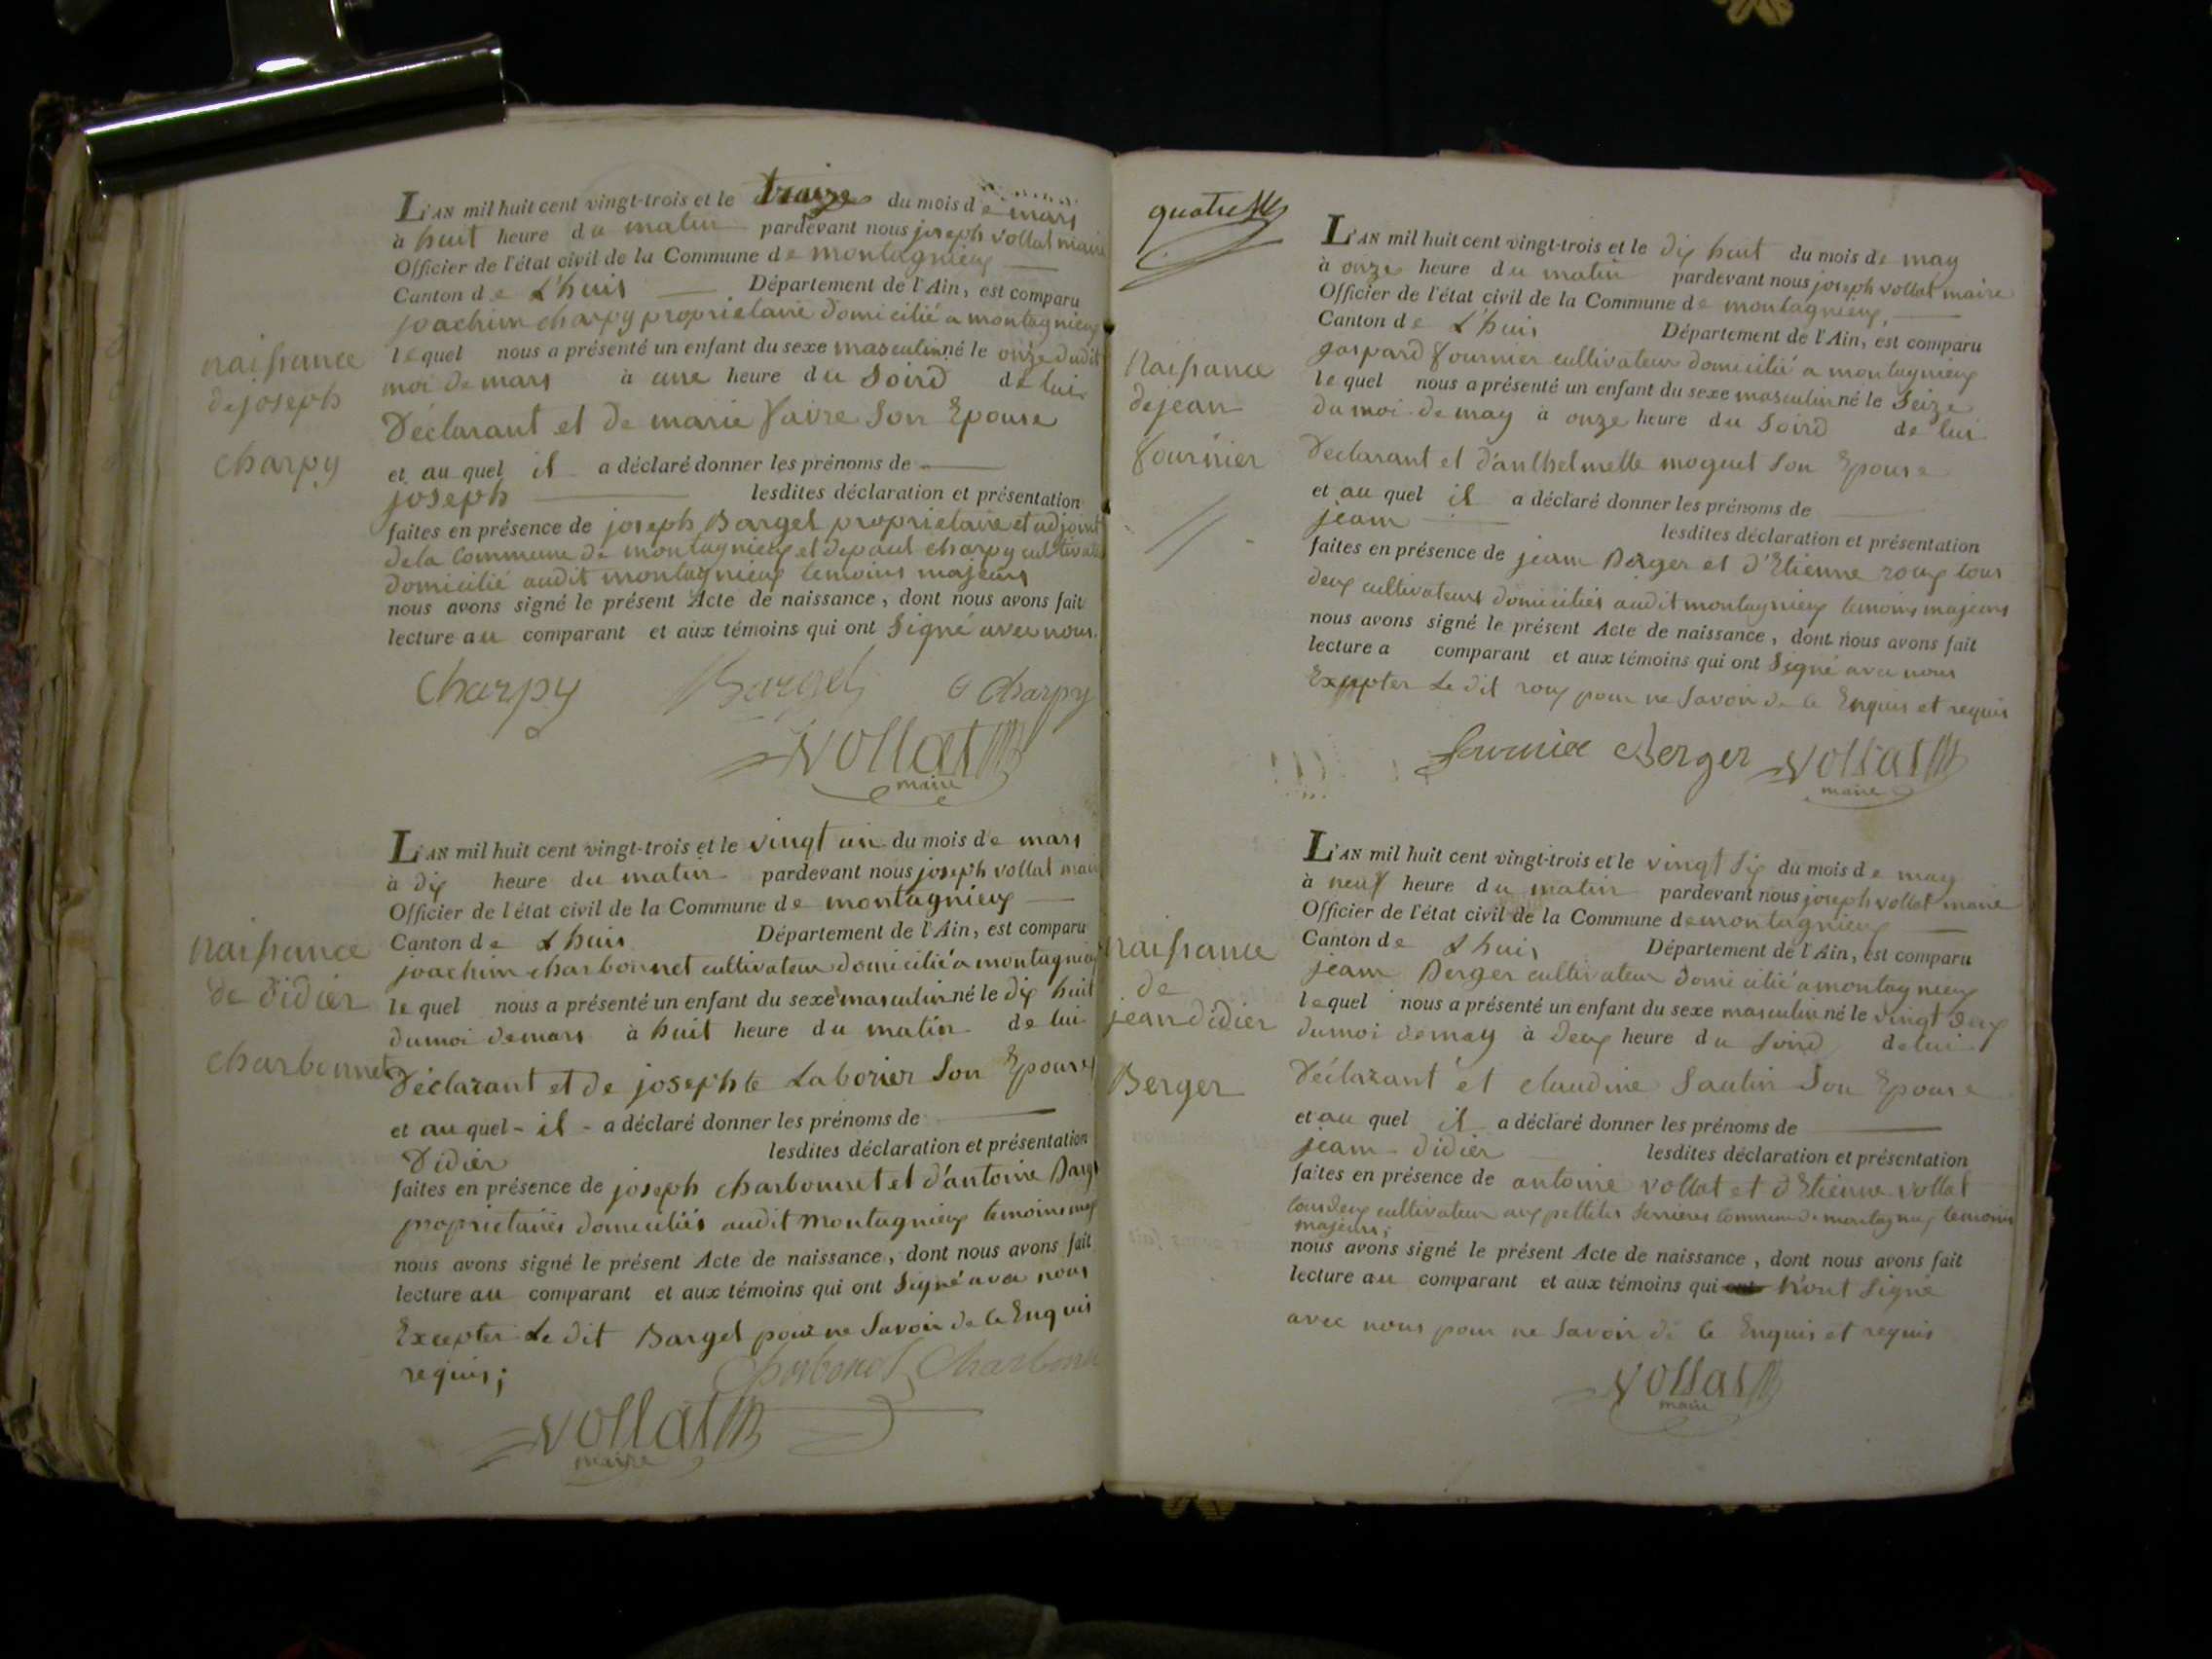 L'AN mil huit cent vingt-trois et le traize du mois de mars
à huit heure du matin pardevant nous joseph vollat maire
Officier de l'état civil de la Commune de montagnieux
Canton de L'huis Département de l'Ain, est comparu
joachim charpy proprietaire domicilié a montagnieux
lequel nous a présenté un enfant du sexe masculin né le onze dudit
moi de mars à une heure du Soird de lui
Déclarant et de marie favre Son Epouse
et au quel il a déclaré donner les prénoms de
joseph lesdites déclaration et présentation
faites en présence de joseph Bargel proprietaire et adjoint
de la Commune de montagnieux et de paul charpy cultivateur
domicilié audit montagnieux temoins majeurs
nous avons signé le présent Acte de naissance, dont nous avons fait
lecture au comparant et aux témoins qui ont Signé avec nous.
naissance
de joseph
charpy
Charpy Bargel charpy
vollat
maire
L'AN mil huit cent vingt-trois et le vingt un du mois de mars
à dix heure du matin pardevant nous joseph vollat mair
Officier de l'état civil de la Commune de montagnieux
Canton de Lhuis Département de l'Ain, est comparu
joachim charbonnet cultivateur domicilié a montagnieux
lequel nous a présenté un enfant du sexe masculin né le dix huit
du moi de mars à huit heure du matin de lui
Déclarant et de josephte Laborier Son Epouse
et au quel - il - a déclaré donner les prénoms de
Didier lesdites déclaration et présentation
faites en présence de joseph charbonnet et d'antoine Barge
proprietaires domiciliés audit montagnieux temoins maj
nous avons signé le présent Acte de naissance, dont nous avons fait
lecture au comparant et aux témoins qui ont Signé avec nous
Excepter Le dit Bargel pour ne Savoir de ce Enquis
requis;
naissance
de didier
charbonnet
Charbonet Charbonn
vollat
maire
quatre
L'AN mil huit cent vingt-trois et le dix huit du mois de may
à onze heure du matin pardevant nous joseph vollat maire
Officier de l'état civil de la Commune de montagnieux,
Canton de L'huis Département de l'Ain, est comparu
gaspard fournier cultivateur domicilié a montagnieux
lequel nous a présenté un enfant du sexe masculin né le Seize
du moi de may à onze heure du Soird de lui
Déclarant et d'anthelmette moguet Son Epouse
et au quel il a déclaré donner les prénoms de
jean lesdites déclaration et présentation
faites en présence de jean Berger et d'Etienne roux tous
deux cultivateurs domiciliés audit montagnieux temoins majeurs
nous avons signé le présent Acte de naissance, dont nous avons fait
lecture a comparant et aux témoins qui ont Signé avec nous
Excepter Le dit roux pour ne Savoir de ce Enquis et requis
Naissance
de jean
fournier
fournier Berger vollat
maire
L'AN mil huit cent vingt-trois et le vingt Six du mois de may
à neuf heure du matin pardevant nous joseph vollat maire
Officier de l'état civil de la Commune de montagnieux
Canton de Lhuis Département de l'Ain, est comparu
jean Berger cultivateur domicilié a montagnieux
lequel nous a présenté un enfant du sexe masculin né le vingt deux
du moi de may à Deux heure du Soird de lui
Déclarant et claudine Sautin Son Epouse
et au quel il a déclaré donner les prénoms de
jean didier lesdites déclaration et présentation
faites en présence de antoine vollat et d'Etienne vollat
tous deux cultivateur aux pettites Serrieres commune de montagnieux temoins
majeurs;
nous avons signé le présent Acte de naissance, dont nous avons fait
lecture au comparant et aux témoins qui n'ont Signé
avec nous pour ne Savoir de ce Enquis et requis
naissance
de
jean didier
Berger
vollat
maire